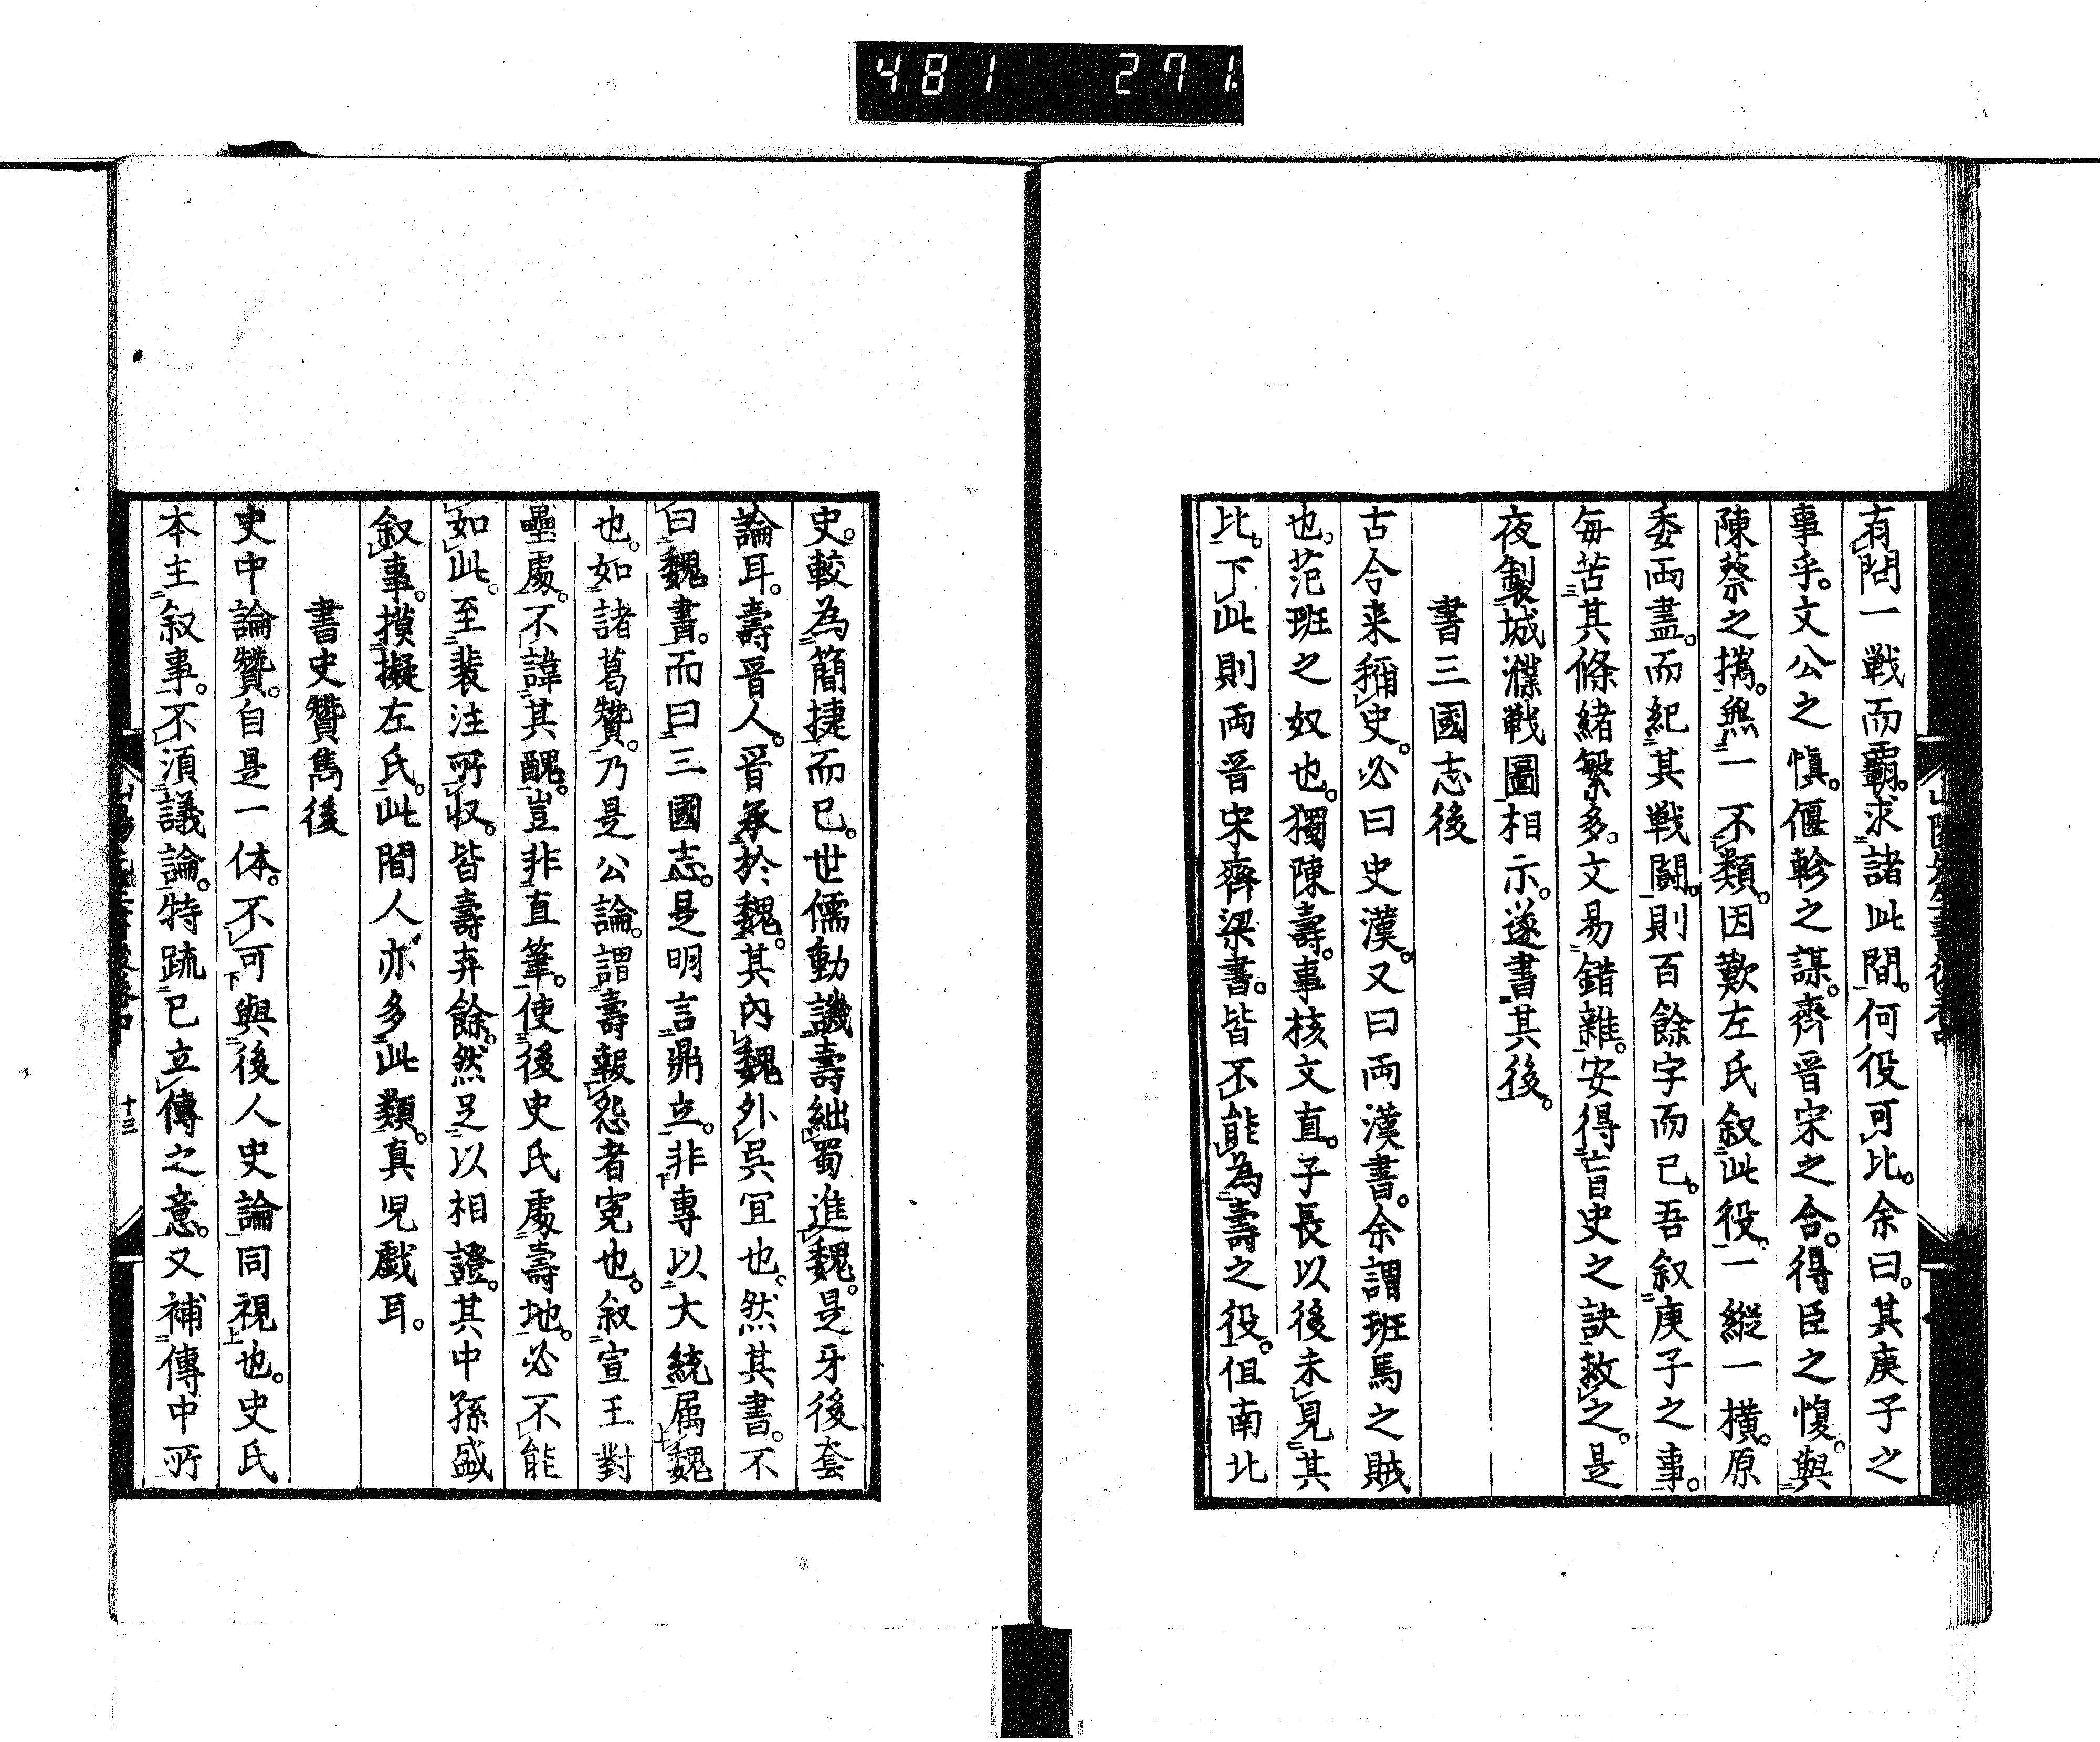 481 271
有問一戦而霸。求諸此間。何役可比。余曰。其庚子之
事乎。文公之愼。偃軫之謀。齊晉宋之合。得臣之愎。與
陳蔡之携。無一不類。因歎左氏叙此役。一縱一横。原
委両盡。而紀其戦闘。則百餘字而已。吾叙庚子之事。
毎苦其條緒繁多。文易錯雜。安得盲史之訣救之。是
夜製城濮戦圖相示。遂書其後。
書三國志後
古今来稱史。必曰史漢。又曰両漢書。余謂班馬之賊
也。范班之奴也。獨陳壽。事核文直。子長以後未見其
比。下此則両晉宋齊梁書。皆不能為壽之役。但南北
史。較為簡捷而已。世儒動譏壽絀蜀進魏。是牙後套
論耳。壽晉人。晉承於魏。其内魏外呉宜也。然其書。不
曰魏書。而曰三國志。是明言鼎立。非專以大統属魏
也。如諸葛贊。乃是公論。謂壽報怨者寃也。叙宣王對
壘處。不諱其醜。豈非直筆。使後史氏處壽地。必不能
如此。至裴注所収。皆壽弃餘。然足以相證。其中孫盛
叙事。摸擬左氏。此間人亦多此類。真児戯耳。
書史贊雋後
史中論贊。自是一体。不可與後人史論同視也。史氏
本主叙事。不湏議論。特䟽已立傳之意。又補傳中所
十三